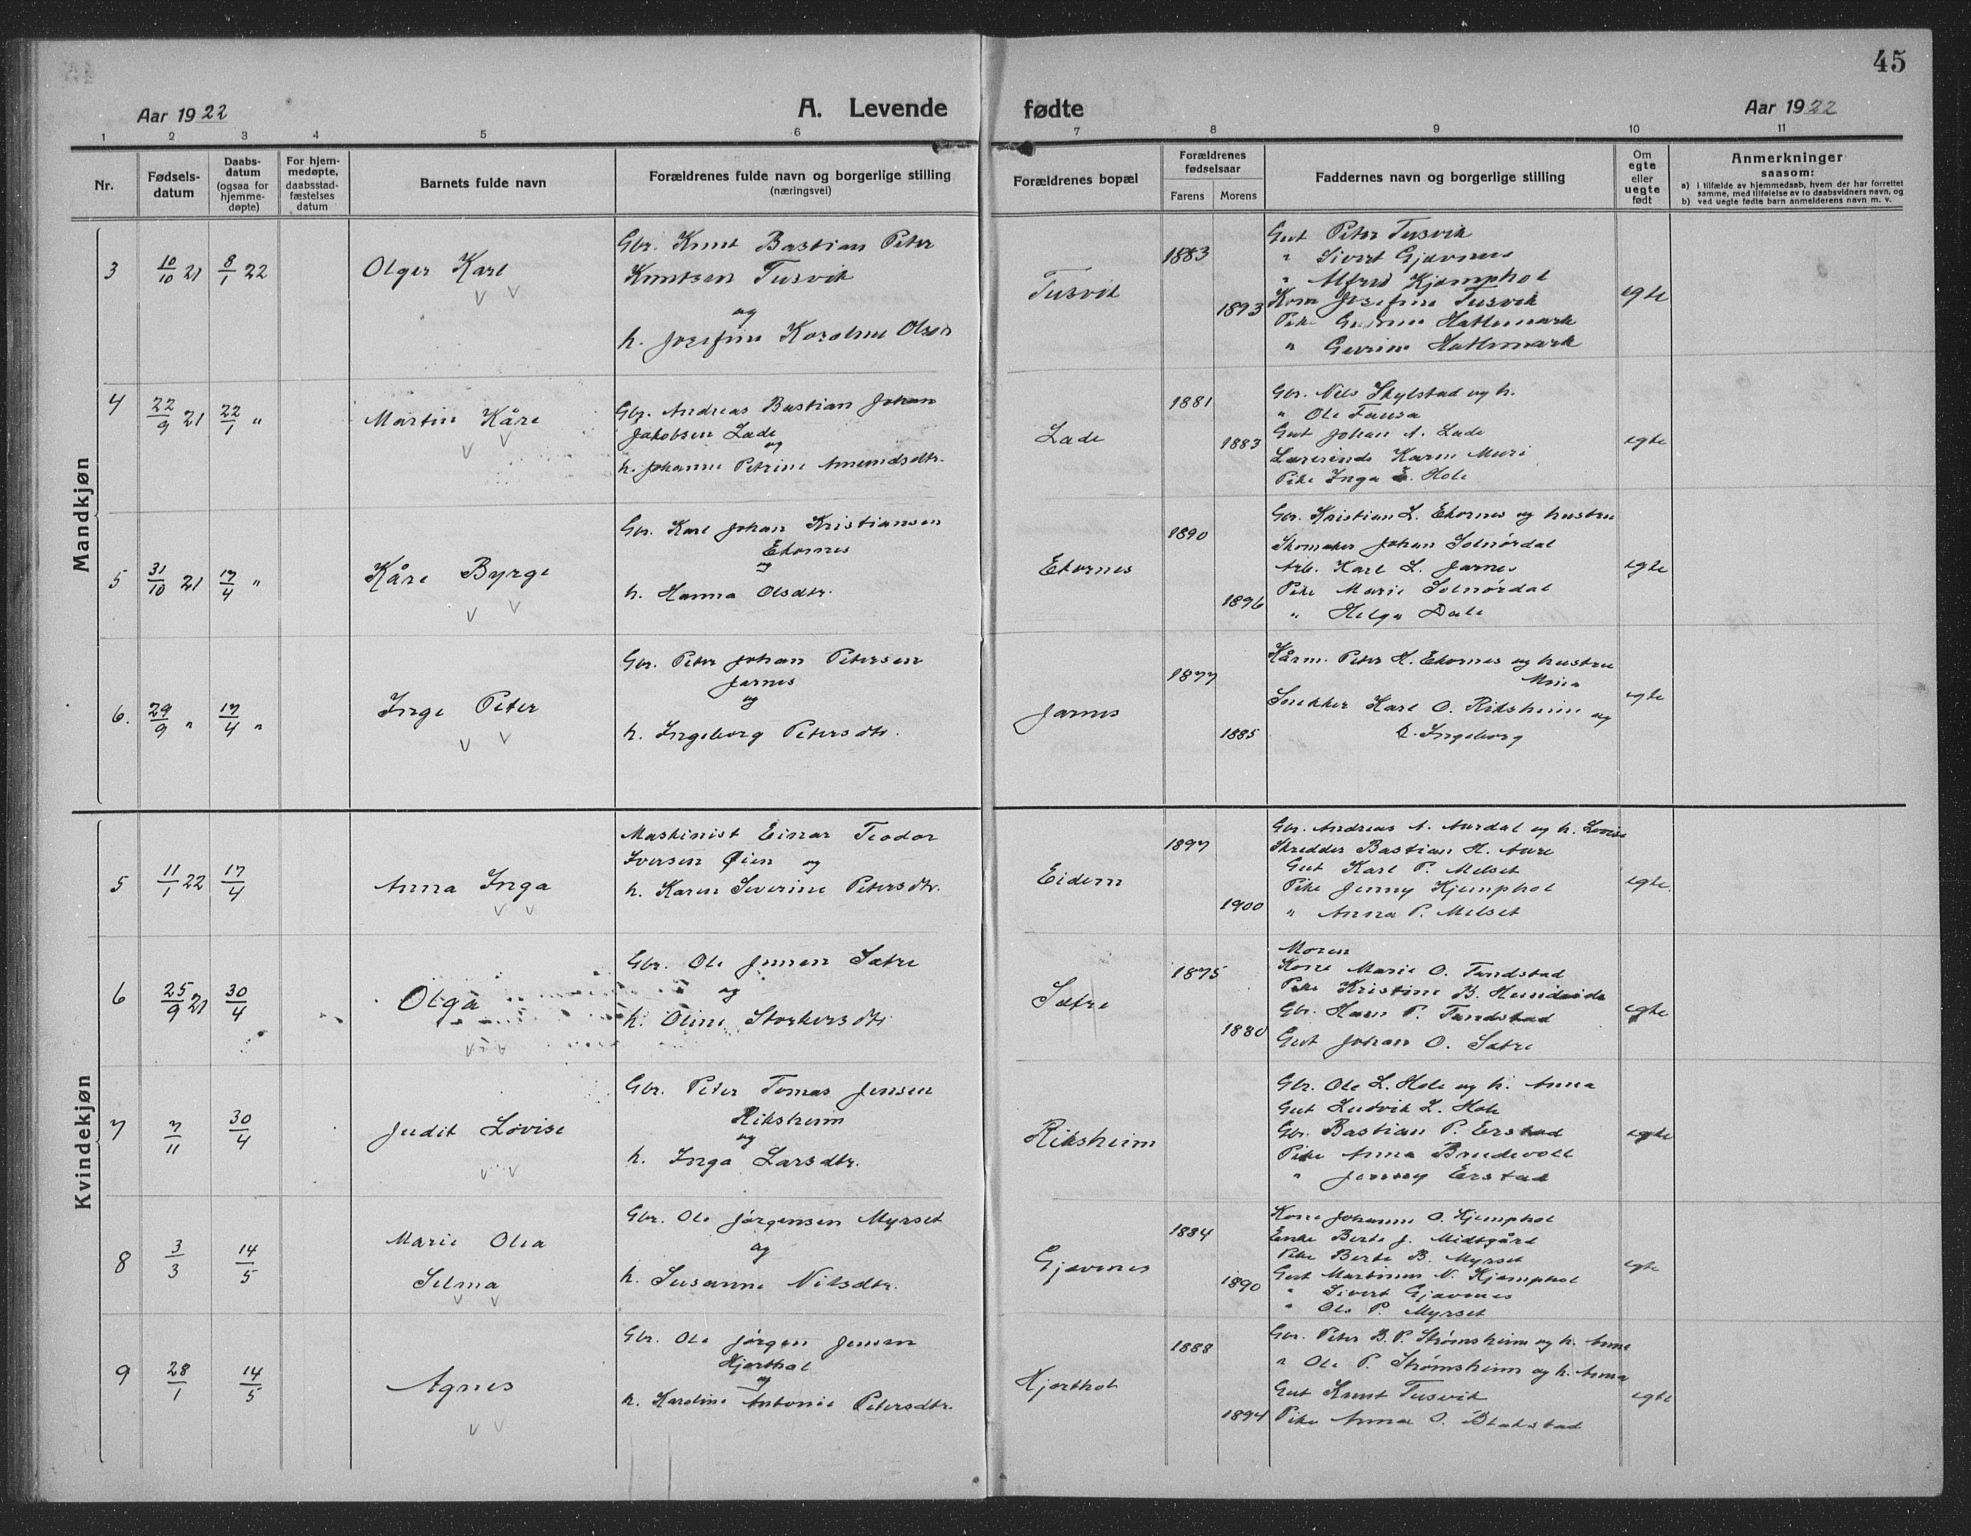 45
Aar 1922
A. Levende
fødte
Aar 1922
1 2 3 4 5 6 7 8 9 10 11
Nr.
Fødsels-
datum
Daabs-
datum
(ogsaa for
hjemme-
døpte)
For hjem-
medøpte,
daabsstad-
fæstelses
datum
Barnets fulde navn
Forældrenes fulde navn og borgerlige stilling
(næringsvei)
Forældrenes bopæl
Forældrenes
fødselsaar
Farens Morens
Faddernes navn og borgerlige stilling
Om
egte
eller
uegte
født
Anmerkninger
saasom:
a) i tilfælde av hjemmedaab, hvem der har forrettet
samme, med tilføielse av to daabsvidners navn, og
b) ved uegte fødte barn anmelderens navn m. v.
Mandkjøn
3 10/10 21 8/1 22
Olger Karl
Gbr. Knut Bastian Peter
Knutsen Tusvik
og
h. Josefine Karoline Olsen
Tusvik
1883
1893
Gut Peter Tusvik
" Sivert Gjævenes
" Alfred Kjemphol
Kone Josefine Tusvik
Pike Gudrun Hattemark
" Gurine Hattemark
egte
4 22/9 21 22/1 "
Martin Kåre
Gbr. Andreas Bastian Johan
Jakobsen Lade
og
h. Johanne Petrine Amundsdtr.
Lade
1881
1883
Gbr. Nils Skylstad og h.
" Ole Fausa
Gut Johan A. Lade
Lærerinde Karen Muri
Pike Inga E. Hole
egte
5 31/10 21 17/4 "
Kåre Byrge
Gbr. Karl Johan Kristiansen
Ekornes
og
h. Hanna Olsdtr.
Ekornes
1890
1896
Gbr. Kristian L. Ekornes og hustru
Skomaker Johan Solnørdal
Arb. Karl L. Jarnes
Pike Marie Solnørdal
" Helga Dale
egte
6. 29/9 " 17/4 "
Inge Peter
Gbr. Peter Johan Petersen
Jarnes
og
h. Ingeborg Petersdtr.
Jarnes
1877
1885
Kårm. Peter H. Ekornes og hustru
Snekker Karl O. Riksheim og
h. Ingeborg
egte
Kvindekjøn
5 11/1 22 17/4
Anna Inga
Maskinist Einar Teodor
Iversen Øien og
h. Karen Severine Petersdtr.
Eidem
1897
1900
Gbr. Andreas A. Aurdal og h. Lovise
Skredder Bastian H. Aure
Gut Karl P. Melset
Pike Jenny Kjemphol
" Anna P. Melset
egte.
6 25/9 21 30/4
Olga
Gbr. Ole Jensen Sætre
og
h. Oline Storkersdtr
Sætre
1875
1880
Moren
Kone Marie O. Tandstad
Pike Kristine B. Hundeide
Gbr. Hans P. Tandstad
Gut Johan O. Sætre
egte
7 7/11 30/4
Judit Lovise
Gbr. Peter Tomas Jensen
Riksheim
og
h. Inga Larsdtr.
Riksheim
Gbr. Ole L. Hole og h. Anna
Gut Ludvik L. Hole
Gbr. Bastian P. Erstad
Pike Anna Brudevoll
" Jenny Erstad
egte
8 3/3 14/5
Marie Olea
Selma
Gbr. Ole Jørgensen Myrset
og
h. Susanne Nilsdtr.
Gjævenes
1884
1890
Kone Johanne O. Kjemphol
Enke Berte J. Midtgård
Pike Berte B. Myrset
Gut Martinus N. Kjemphol
" Sivert Gjævenes
" Ole P. Myrset
egte
9 28/1 14/5
Agnes
Gbr. Ole Jørgen Jensen
Hjorthol
og
h. Karoline Antonie Petersdtr.
Hjorthol
1888
1894
Gbr. Peter B. P. Strømsheim og h. Anne
" Ole P. Strømsheim og h. Anna
Gut Knut Tusvik
Pike Anna O. Blakstad
egte